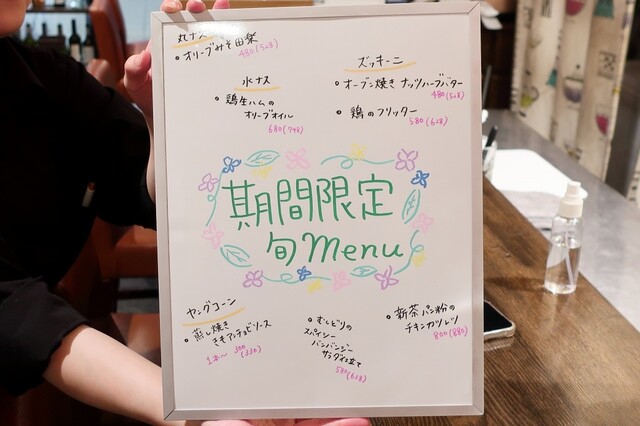 丸ナス
・オリーブみそ田楽
480(528)
水ナス
・鶏生ハムの
オリーブオイル
680(748)
ズッキーニ
・オーブン焼き ナッツハーブバター
480(528)
・鶏のフリッター
580(638)
期間限定
旬Menu
ヤングコーン
・蒸し焼き
きもアンチョビソース
1本〜 300
(330)
・むしどりの
スパイシー
バンバンジー
サラダ仕立て
580
(638)
・新茶パン粉の
チキンカツレツ
800(880)